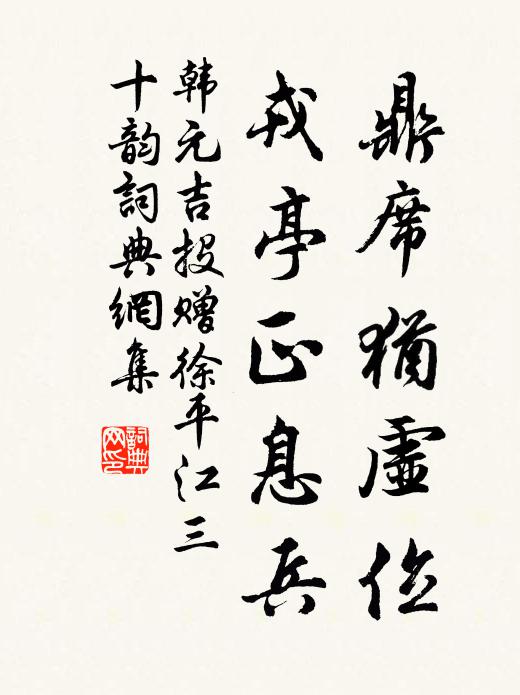 鼎席猶虛位
戎亭正息兵
韩元吉投赠徐平江三
十韵詞典網集
詞典
网印